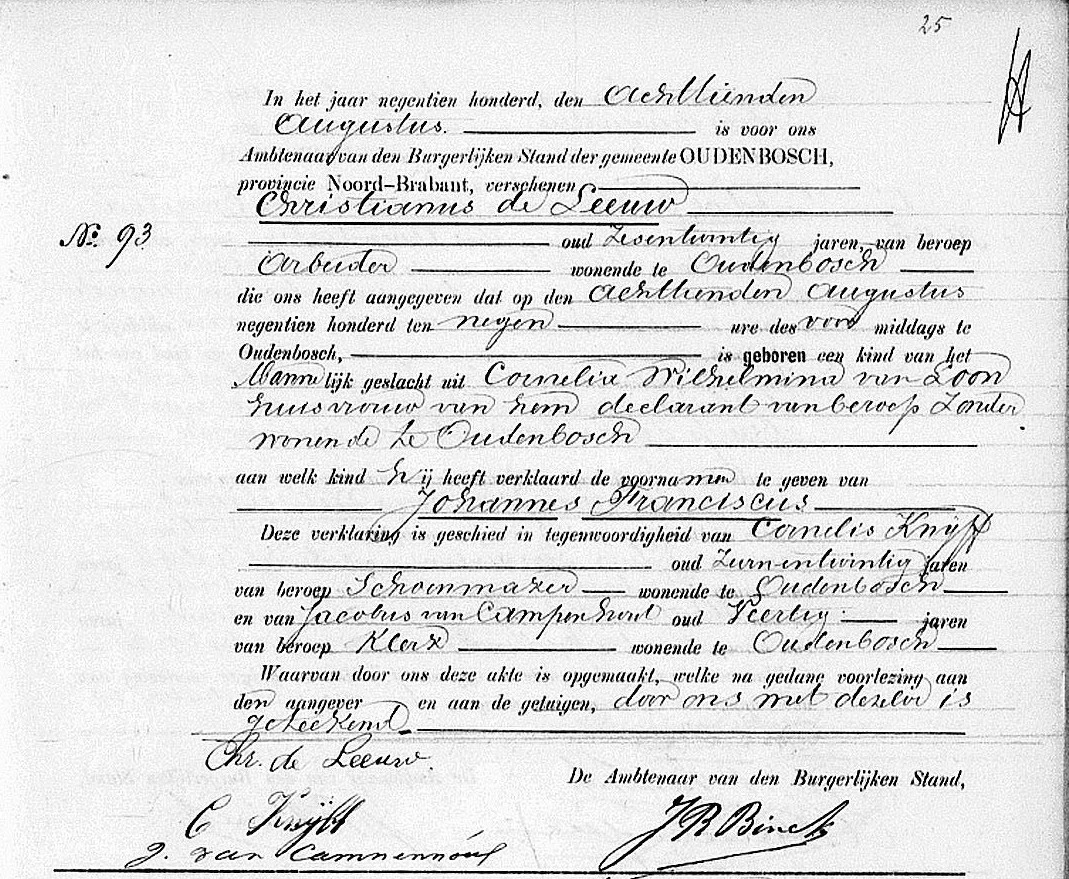 25
In het jaar negentien honderd, den achttienden
Augustus. is voor ons
Ambtenaar van den Burgerlijken Stand der gemeente OUDENBOSCH,
provincie Noord-Brabant, verschenen
Christianus de Leeuw
No. 93
oud zesentwintig jaren, van beroep
Arbeider wonende te Oudenbosch
die ons heeft aangegeven dat op den achttienden Augustus
negentien honderd ten negen ure des voor middags te
Oudenbosch, is geboren een kind van het
Mannelijk geslacht uit Cornelia Wilhelmina van Loon
huisvrouw van hem declarant van beroep Zonder
wonende te Oudenbosch
aan welk kind hij heeft verklaard de voornamen te geven van
Johannes Franciscus
Deze verklaring is geschied in tegenwoordigheid van Cornelis Knijff
oud jaren
van beroep Schoenmaker wonende te Oudenbosch
en van Jacobus van Campenhout oud Veertig jaren
van beroep Klerk wonende te Oudenbosch
Waarvan door ons deze akte is opgemaakt, welke na gedane voorlezing aan
den aangever en aan de getuigen, door ons met dezelve is
geteekend.
Chr. de Leeuw.
De Ambtenaar van den Burgerlijken Stand,
C Knijff
J. van Campenhout